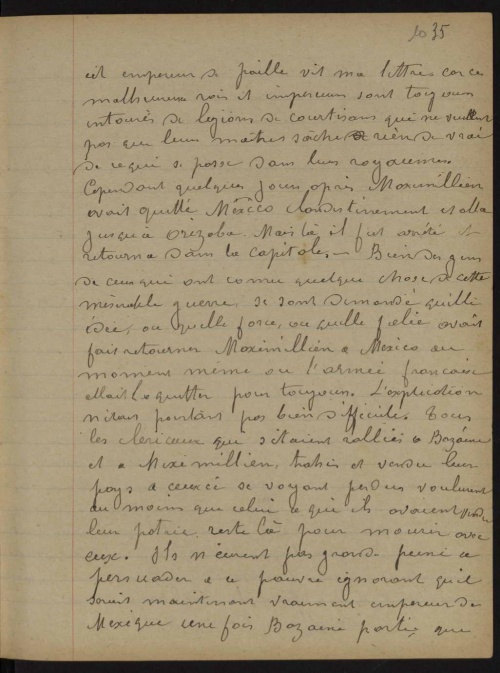 1035
cet empereur de paille vit ma lettres car ces
malheureux rois et empereurs sont toujours
intourés de legions de courtisans qui ne veullent
pas que leurs maitres sache rien de vrai
de ce qui se passe dans leurs royaumes.
Cependant quelques jours après Maximillien
avait quitté Mexico clandestinement et alla
jusqu'à Orizaba. Mais là il fut arrété et
retourna dans la capitale. – Bien des gens
de ceux qui ont connu quelque chose de cette
misérable guerre, se sont demandé quelle
idée, ou quelle force, ou quelle folie avait
fait retourner Maximillien a Mexico au
moment même ou l'armée francaise
allait le quitter pour toujours. L'explication
n'etait pourtant pas bien difficile. Tous
les clericaux qui s'étaient ralliés a Bazaine
et a Maximillien, trahis et vendu leur
pays a ceux ci se voyant perdus voulurent
au moins que celui a qui ils avaient vendu
leur patrie reste là pour mourir avec
eux. Ils n'eurent pas grande peine a
persuader a ce pauvre ignorant qu'il
serait maintenant vraiment empereur de
Mexique une fois Bazaine partie, que